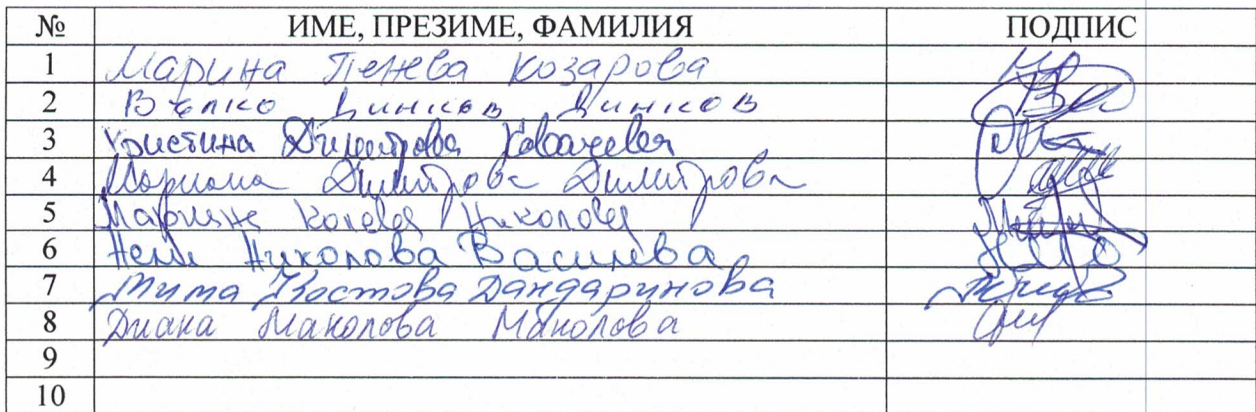 № ИМЕ, ПРЕЗИМЕ, ФАМИЛИЯ ПОДПИС
1 Марина Пенева Козарова
2 Вълко Динков Динков
3 Христина Димитрова Ковачева
4 Мариана Димитрова Димитрова
5 Марияна Колева Николова
6 Нели Николова Василева
7 Тита Костова Дандаринова
8 Диана Манолова Манолова
9
10